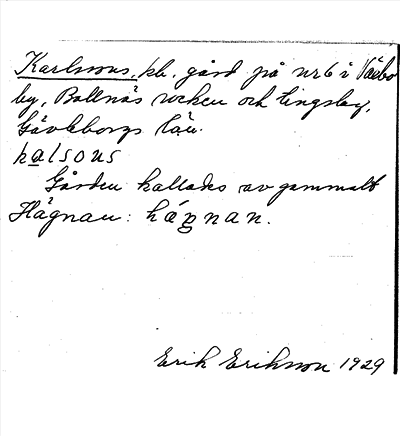 Karlssons, kb. gård på nr 6 i Växbo
by, Bollnäs socken och tingslag,
Gävleborgs län.
kalsons
Gården kallades av gammalt
Hägnan: hágnan.
Erik Eriksson 1929